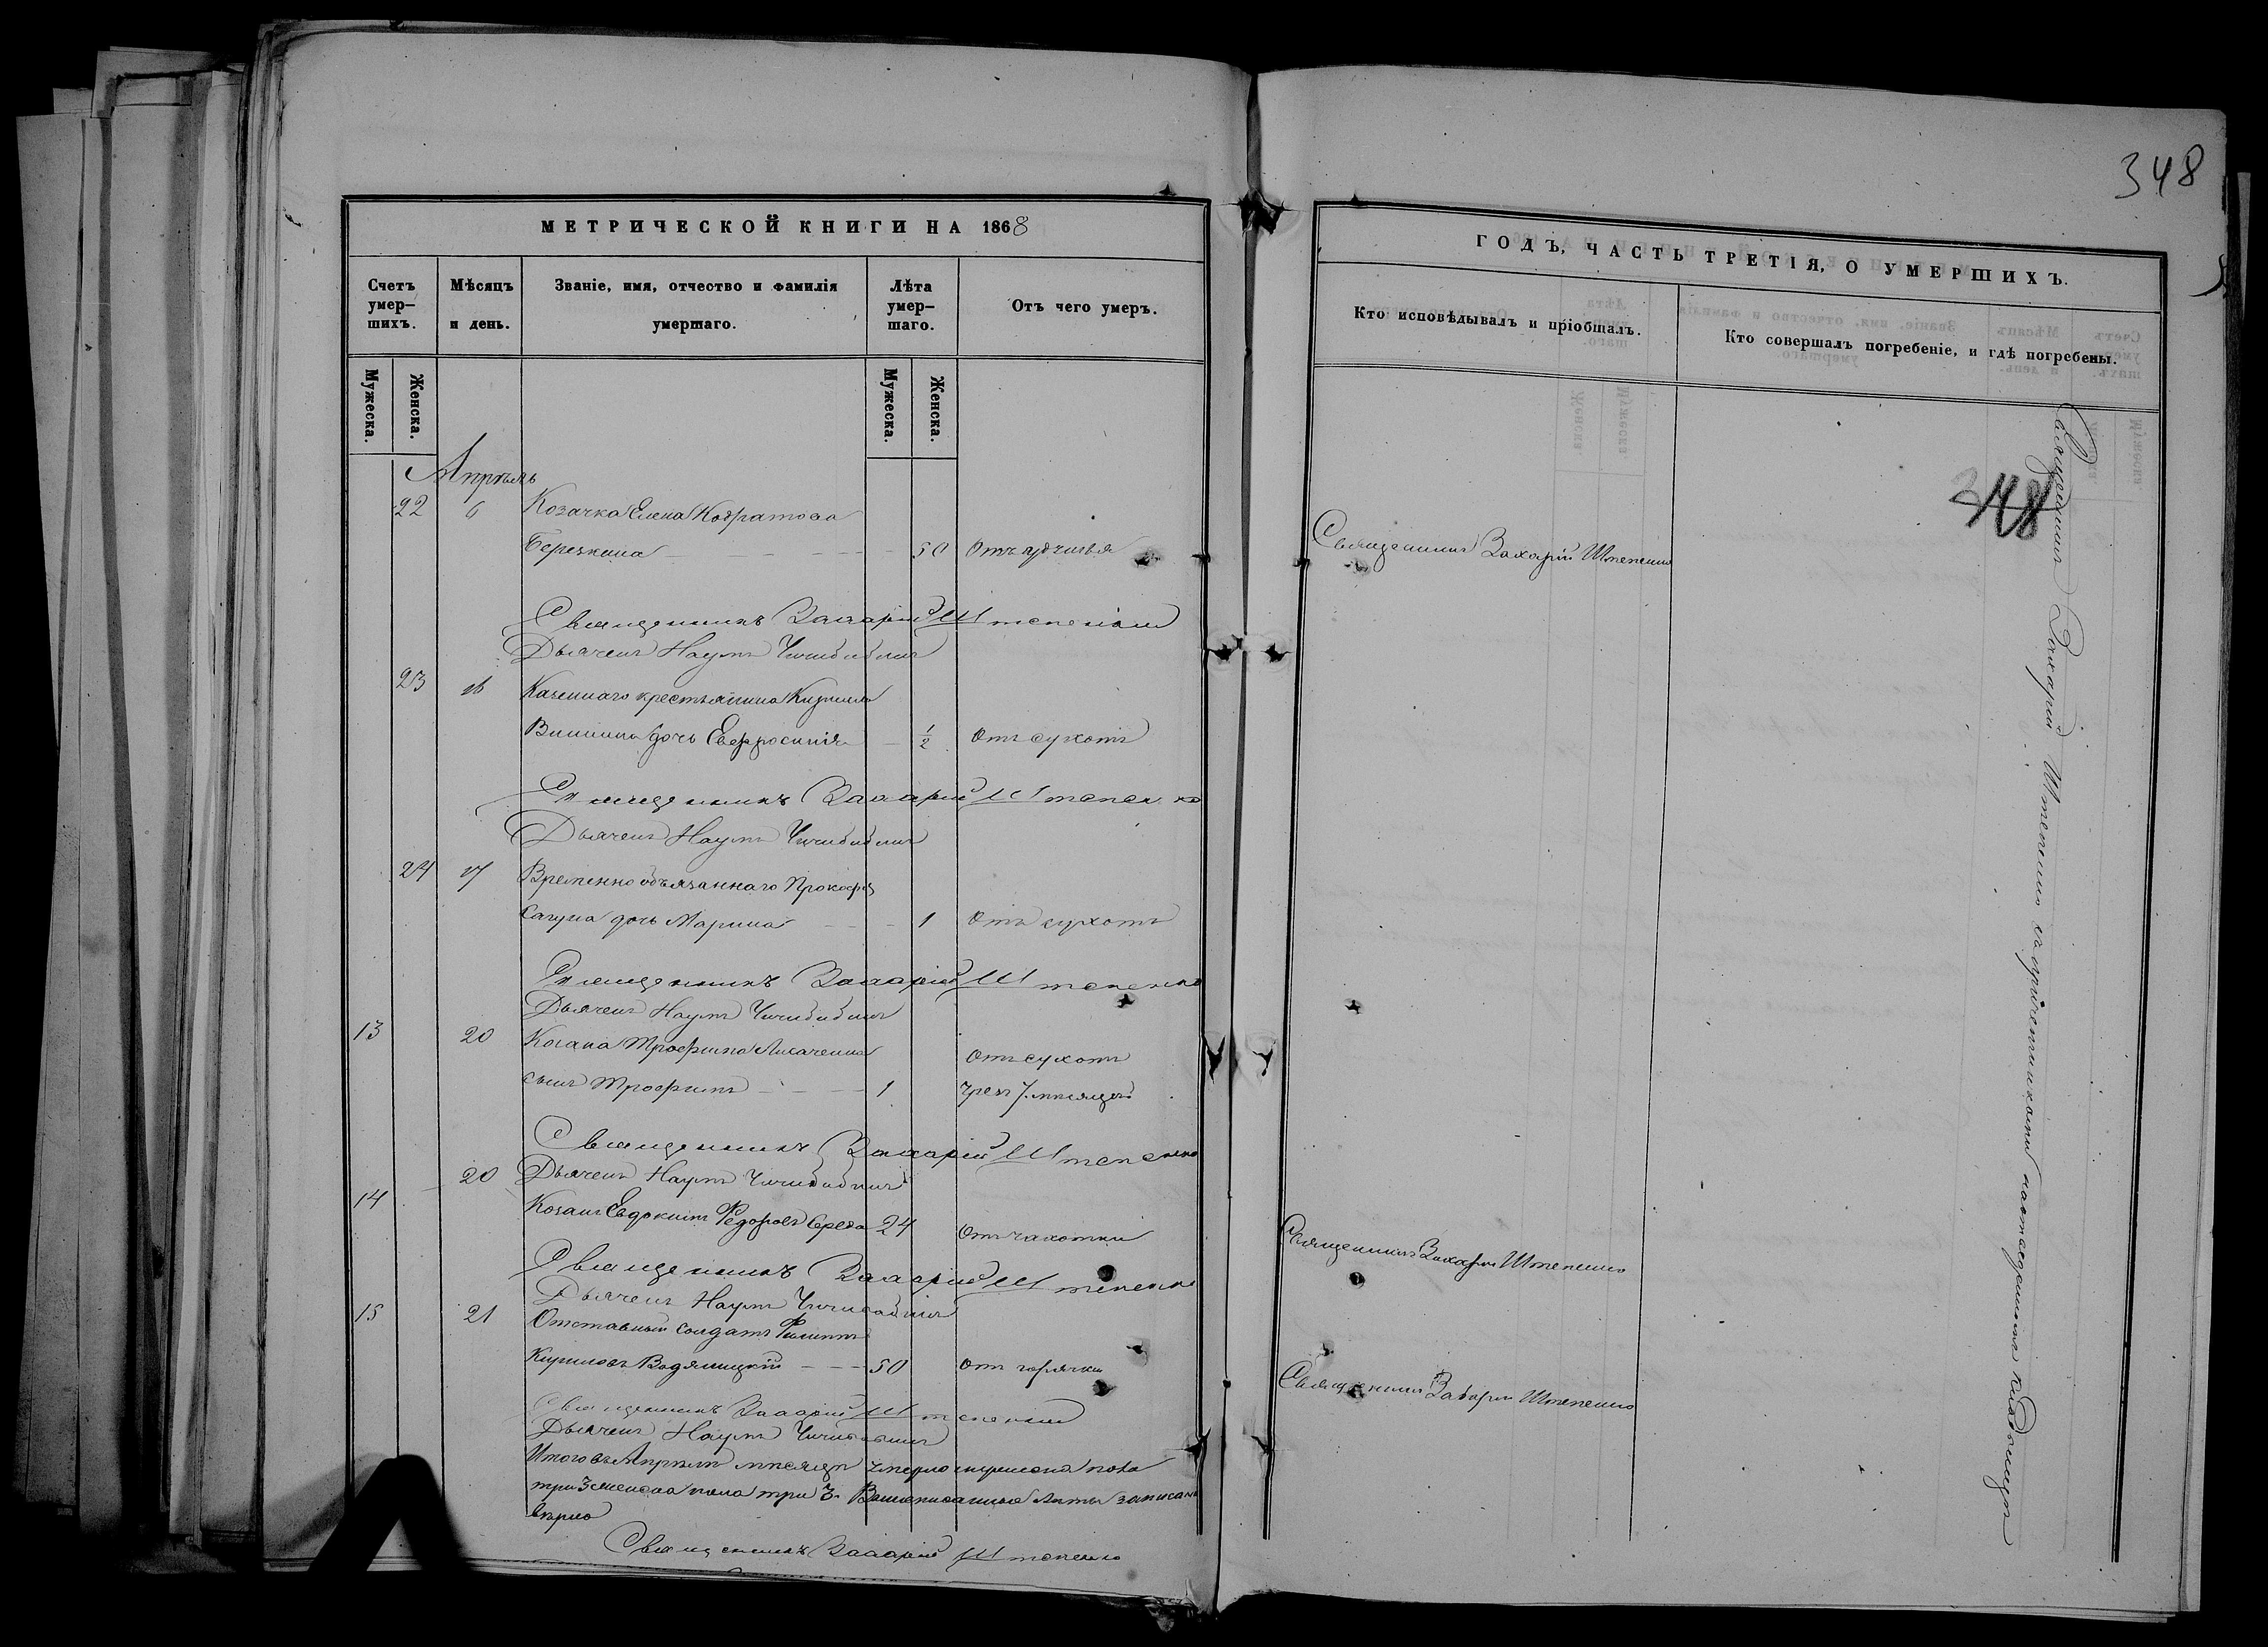 348
МЕТРИЧЕСКОЙ КНИГИ НА 1868
ГОДЪ, ЧАСТЬ ТРЕТІЯ, О УМЕРШИХЪ.
Счетъ умер-
шихъ.
Мѣсяцъ
и день.
Званіе, имя, отчество и фамилія
умершаго.
Лѣта
умер-
шаго.
Отъ чего умеръ.
Кто исповѣдывалъ и пріобщалъ.
Кто совершалъ погребеніе, и гдѣ погребены.
Мужеска.
Женска.
Мужеска.
Женска.
Апрѣль
348
22 6 Козачка Елена Кодратова
50 Отъ
Священникъ Захарій Штепенко
Священникъ Захарій Штепенко
Дьячекъ Наумъ
23 16 Казеннаго крестьянина
дочь Евфросинія 1/2 Отъ сухотъ
Священникъ Захарій Штепенко
Дьячекъ Наумъ
24 17 Временно обязаннаго Прокофія
дочь Марина 1 Отъ сухотъ
Священникъ Захарій Штепенко
Дьячекъ Наумъ
13 20 Козака Трофима Лисаченка
Отъ сухотъ
сынъ Трофимъ 1 чрезъ 7 мѣсяцей
Священникъ Захарій Штепенко
20 Дьячекъ Наумъ
14 Козакъ Евдокимъ Федоровъ Середа 24 Отъ чахотки
Священникъ Захарій Штепенко
Священникъ Захарій Штепенко
Дьячекъ Наумъ
15 21 Отставный солдатъ Филиппъ
Кириловъ Водяницкій 50 Отъ горячки
Священникъ Захарій Штепенко
Священникъ Захарій Штепенко
Дьячекъ Наумъ
Итого въ Апрѣлѣ мѣсяцѣ умерло мужеска пола
три 3 женска пола три 3. Вышеписанные Акты записаны
вѣрно
Священникъ Захарій Штепенко
Священникъ Захарій Штепенко съ причетниками на кладбищѣ